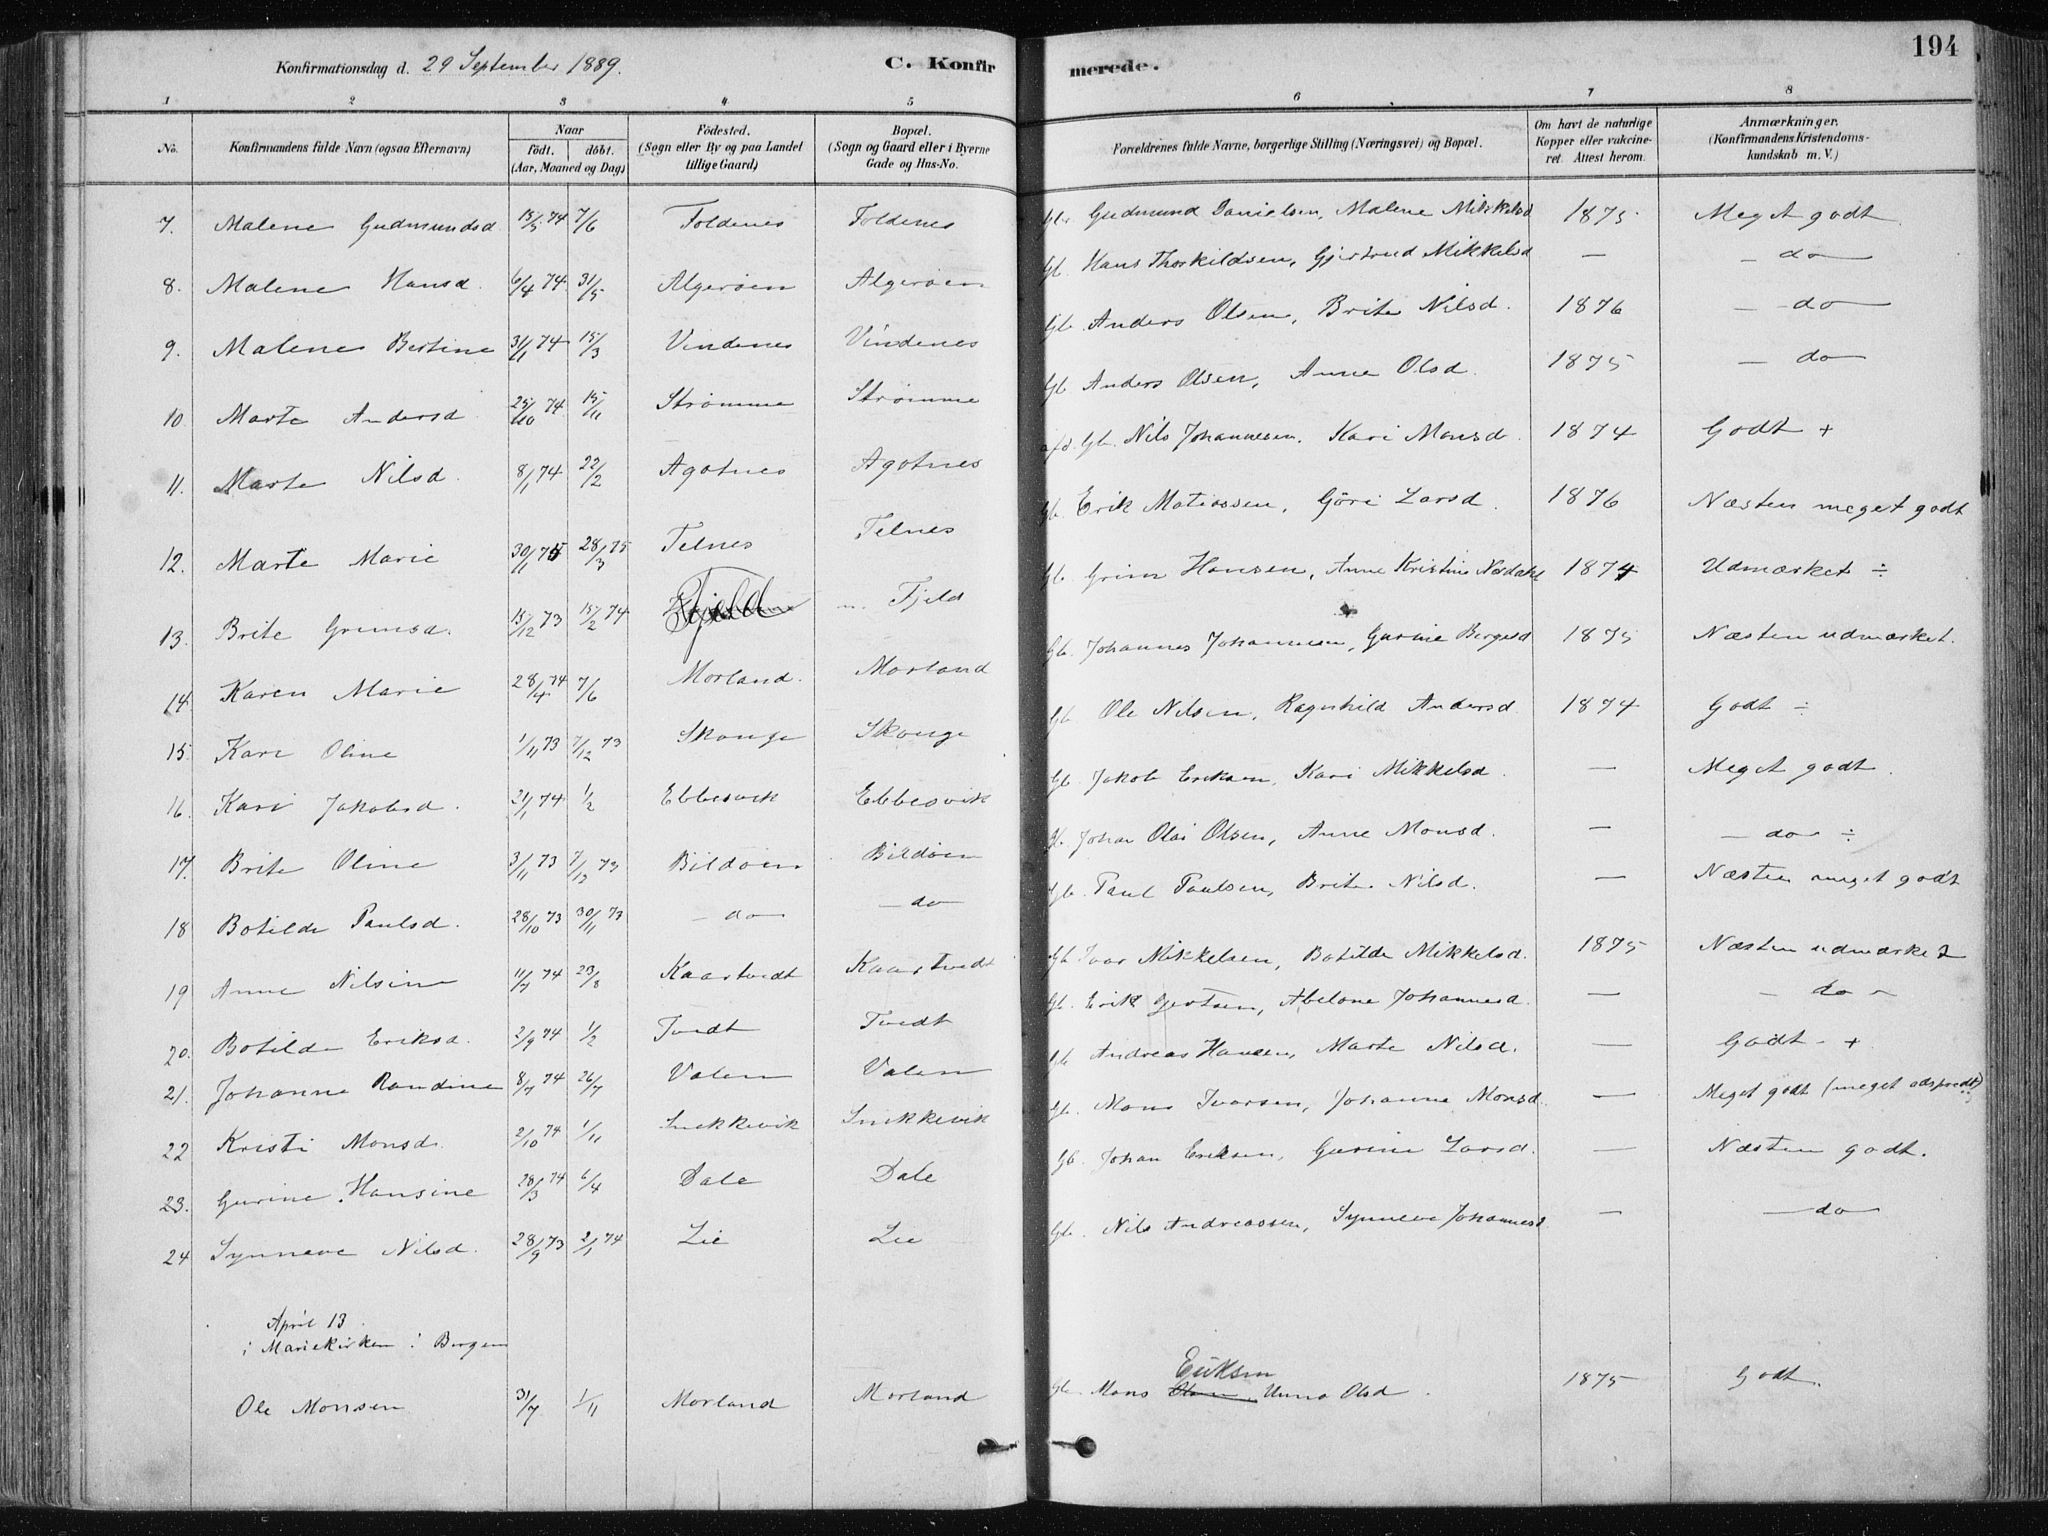 194
Konfirmationsdag d. 29 September 1889. C. Konfirmerede.
1 2 3 4 5 6 7 8
No. Konfirmandens fulde Navn (ogsaa Efternavn) Naar født. døbt. (Aar, Maaned og Dag) Fødested. (Sogn eller By og paa Landet tillige Gaard) Bopæl. (Sogn og Gaard eller i Byerne Gade og Hus-No. Forældrenes fulde Navne, borgerlige Stilling (Næringsvei) og Bopæl. Om havt de naturlige Kopper eller vakcineret. Attest herom. Anmærkninger. (Konfirmandens Kristendomskundskab m. V.)
7. Malene Gudmundsd 15/5 74 7/6 Foldenes Foldenes Gbr Gudmund Danielsen, Malene Mikkelsd 1875 Meget godt
8. Malene Hansd. 6/4 74 31/5 Algerøen Algerøen Gb. Hans Thorkildsen, Gjertrud Mikkelsd — — do
9. Malene Bertine 31/1 74 15/3 Vindenes Vindenes Gb. Anders Olsen, Brite Nilsd. 1876 — do
10. Marte Andersd 25/10 74 15/11 Strømme Strømme Gb Anders Olsen, Anne Olsd. 1875 — do
11. Marte Nilsd. 8/1 74 22/2 Agotnes Agotnes afd. Gb. Nils Johannesen. Kari Monsd. 1874 Godt +
12. Marte Marie 30/1 75 28/3 75 Telnes Telnes Gb. Erik Matiassen, Göri Larsd. 1876 Næsten meget godt
13. Brite Grimsd. 15/12 73 15/2 74 Fjeld Fjeld Gb. Grim Hansen, Anne Kristine 1874 Udmærket ÷
14. Karen Marie 28/4 74 7/6 Morland. Morland Gb. Johannes Johannesen, Gurine Bergesd 1875 Næsten udmærket.
15. Kari Oline 1/11 73 7/12 73 Skouge Skouge Gb Ole Nilsen, Ragnhild Andersd 1874 Godt ÷
16. Kari Jakobsd. 21/1 74 1/2 Ebbesvik Ebbesvik Gb. Jakob Eriksen, Kari Mikkelsd. — Meget godt.
17. Brite Oline 3/11 73 7/12 73 Bildøen Bildøen Gb. Johan Olai Olsen, Anne Monsd. — — do ÷
18 Botilde Paulsd. 28/10 73 30/11 73 — do — do Gb. Paul Paulsen, Brite Nilsd. — Næsten meget godt
19 Anne Nilsine 11/7 74 23/8 Kaartvedt Kaartvedt Gb Ivar Mikkelsen, Botilde Mikkelsd. 1875 Næsten udmærket
20. Botilde Eriksd. 2/9 74 1/2 Tvedt Tvedt Gb. Erik Gjertsen, Abelone Johannesd. — — do —
21. Johanne Randine 8/7 74 26/7 Valen Valen Gb Andreas Hansen, Marte Nilsd. — Godt - +
22 Kristi Monsd. 2/10 74 1/11 Snekkevik Snekkevik Gb. Mons Ivarsen, Johanne Monsd. — Meget godt (meget adspredt)
23. Gurine Hansine 28/3 74 6/4 Dale Dale Gb. Johan Eriksen, Gurine Larsd. — Næsten godt.
24 Synneve Nilsd. 28/9 73 2/1 74 Lie Lie Gb. Nils Andreassen, Synneve Johannesd — — do
April 13
i Mariekirken i Bergen
Eriksen
Ole Monsen 31/7 1/11 Morland Morland Gb. Mons Olsen, Unna Olsd. 1875 Godt.